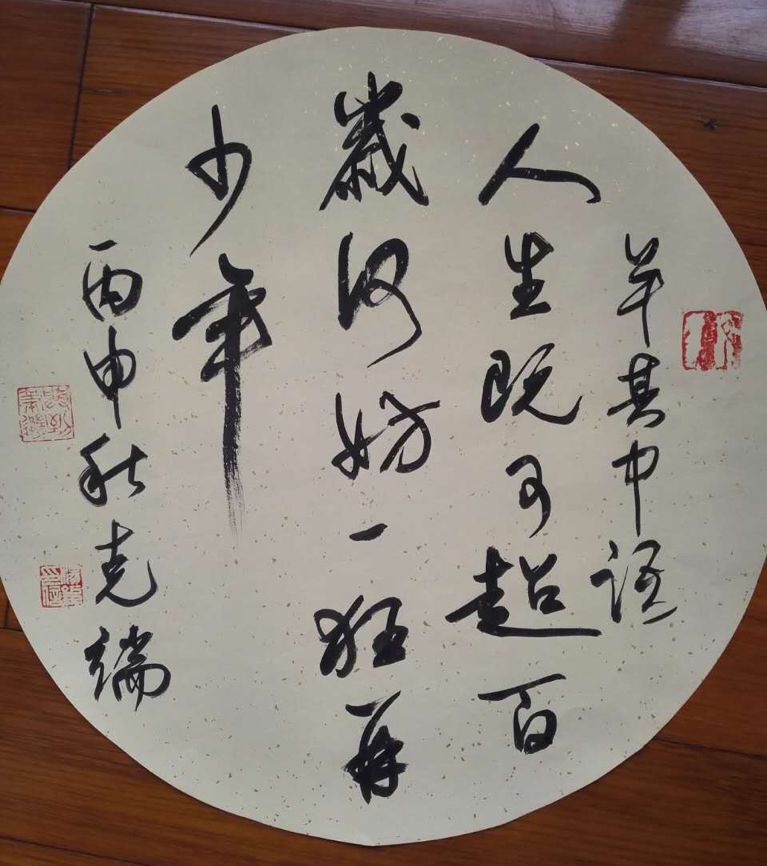 羊其中语
人生既可超百
岁何妨一狂再
少年
丙申秋克端